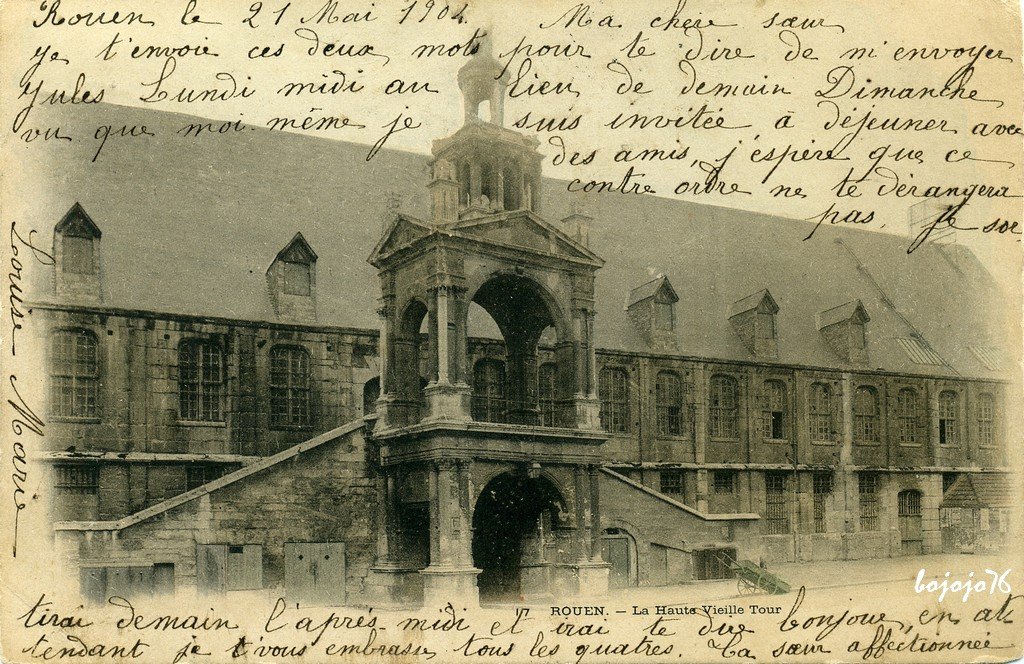 Rouen le 21 Mai 1904 Ma chère sœur
je t'envoie ces deux mots pour te dire de m'envoyer
Jules Lundi midi au lieu de demain Dimanche
vu que moi-même je suis invitée à déjeuner avec
des amis, j'espère que ce
contre ordre ne te dérangera
pas, je sor
tirai demain l'après-midi et irai te dire bonjour, en at
tendant je t'vous embrasse tous les quatres. Ta sœur affectionnée
Louise Marie
17 ROUEN. - La Haute Vieille Tour
bojojo76